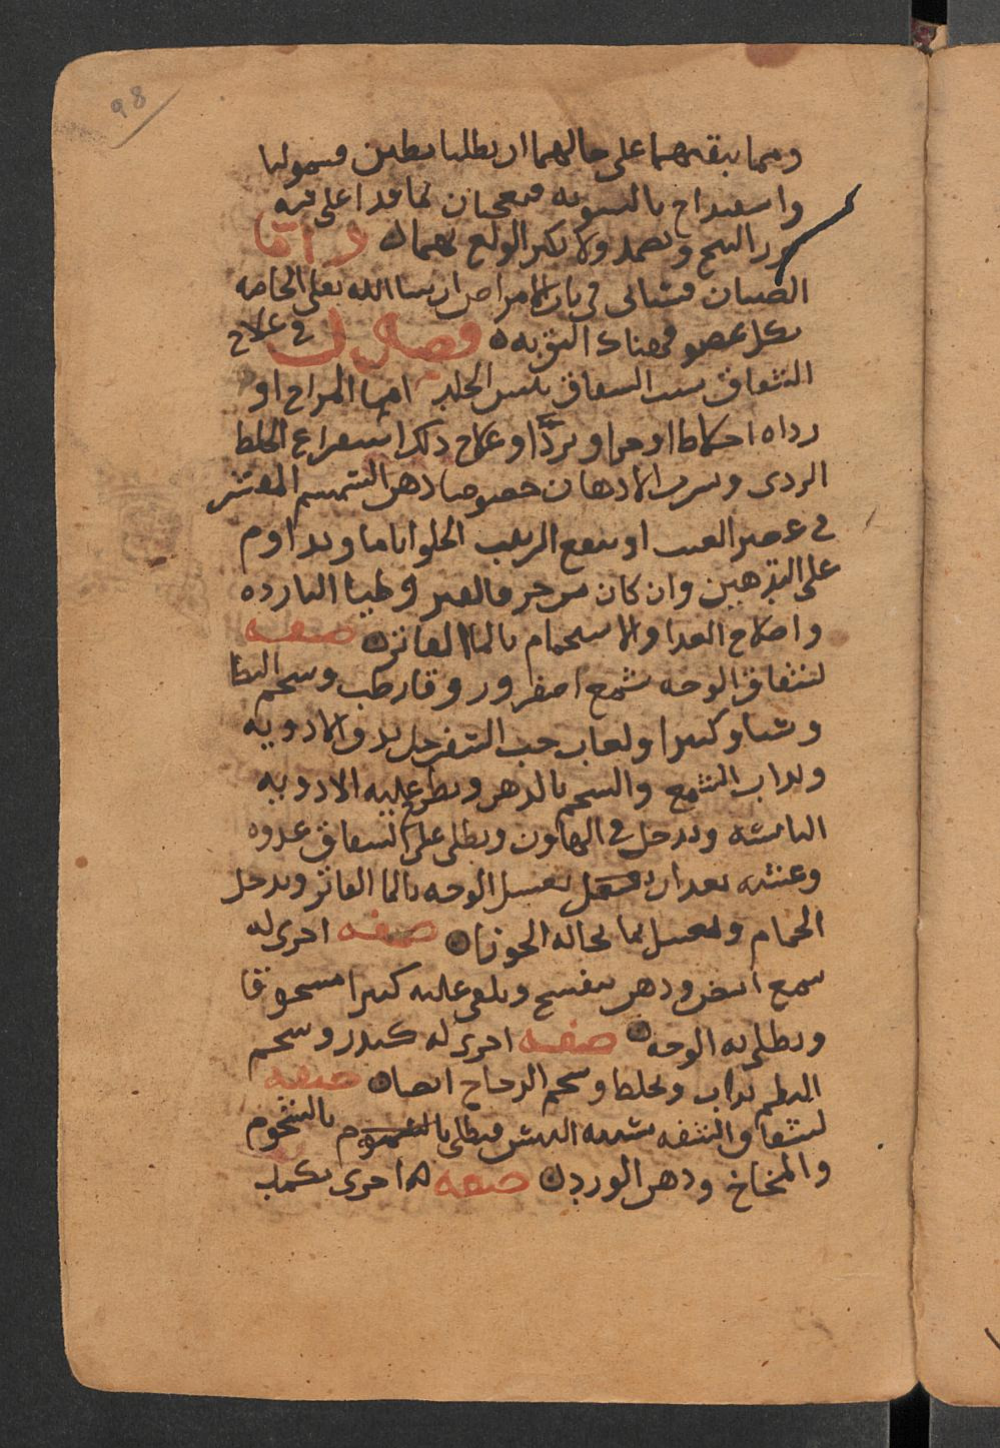 98
ومما يبقيهما على حالهما ان يطليا بطين قيموليا
واسفيداج بالسويه معجنان بما قد اغلي فيه
بزر البنج وتضمد ولا يكثر الولع بهما واما
الصبيان فستاتي في باب الامراض ان شا الله تعلى الخاصه
بكل عضو في هناك التوبه فصل في علاج
الشقاق سبب الشقاق يبس الجلد اما المزاج او
رداه اخلاط او حرا او بردا وعلاج ذلك استفراغ الخلط
الردي وشرب الادهان خصوصا دهن السمسم المقشر
في عصير العنب او نقيع الزبيب الحلو اياما ويداوم
على التدهين وان كان من حر فالقيروطيا البارده
واصلاح الغدا والاستحمام بالما الفاتر صفه
لشقاق الوجه شمع اصفر وزوفا رطب وشحم البط
ونشا وكثيرا ولعاب حب السفرجل يدق الادويه
ويداب الشمع والشحم بالدهن ويطرح عليه الادويه
اليابسه ويدخل في الهاون ويطلى على الشقاق غدوه
وعشيه بعد ان يغسل الوجه بالما الفاتر ويدخل
الحمام ويغسل بما نخاله الحوزان صفه اخرى له
شمع ابيض ودهن بنفسج ويلقى عليه كثيرا مسحوقا
ويطلى به الوجه صفه اخرى له كندر وشحم
البط يداب ويخلط وشحم الدجاج ايضا صفه
لشقاق الشفه شديده اليبس فيطلى بالشحوم
والمخاخ ودهن الورد صفه له اخرى تكمد